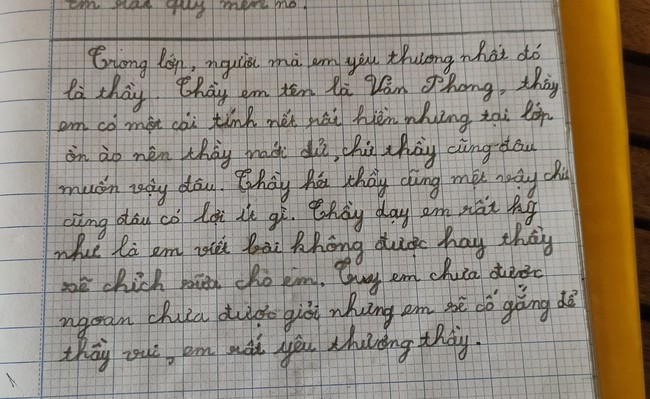 em rất quý mến nó.
Trong lớp, người mà em yêu thương nhất đó
là thầy Thầy em tên là Vân Phong, thầy
em có một cái tính nết rất hiền nhưng tại lớp
ồn ào nên thầy mới dử, chứ thầy cũng đâu
muốn vậy đâu. Thầy hét thầy cũng mệt vậy chứ
cũng đâu có lợi ít gì. Thầy dạy em rất kỹ
như là em viết bài không được hay thầy
sẽ chỉch sữa cho em. Tuy em chưa được
ngoan chưa được giỏi nhưng em sẽ cố gắng để
thầy vui, em rất yêu thương thầy.